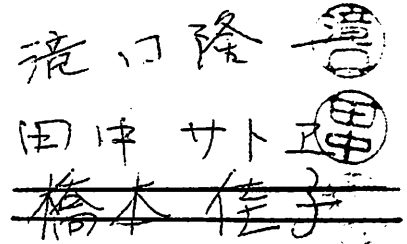 滝口隆一
田中サトヱ 田中
橋本佳子